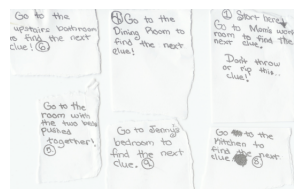 Go to the
upstairs bathroom
to find the next
clue! ⑥
④ Go to the
Dining Room to
find the next
clue!
① Start here
Go to Mom's work
room to find the
next clue.
Don't throw
or rip this..
clue!
Go to the
room with
the two beds
pushed
together!
⑤
Go to Jenny's
bedroom to
find the next
clue.
Go to the
Kitchen to
find the next
clue
③